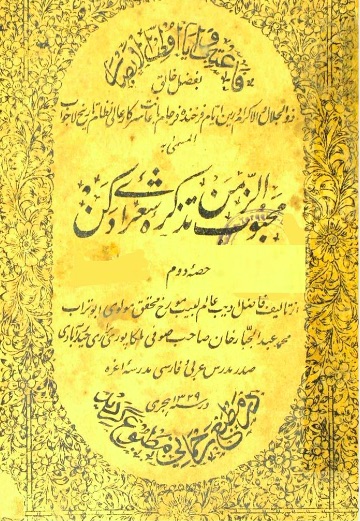 فاعتبروا یا اولی الابصار
بفضل خالق
ذوالجلال والاکرام درین ایام فرخنده
المسمیٰ بہ
محبوب الزمن تذکرۂ شعرائے دکن
حصۂ دوم
از تالیف فاضل ادیب عالم لبیب مورخ محقق مولوی ابوتراب
محمد عبدالجبار خان صاحب صوفی ملکاپوری حیدرآبادی
صدر مدرس عربی و فارسی مدرسہ اعزہ
در سنہ ۱۳۲۹ ہجری
در مطبع رحمانی مطبوع گردید